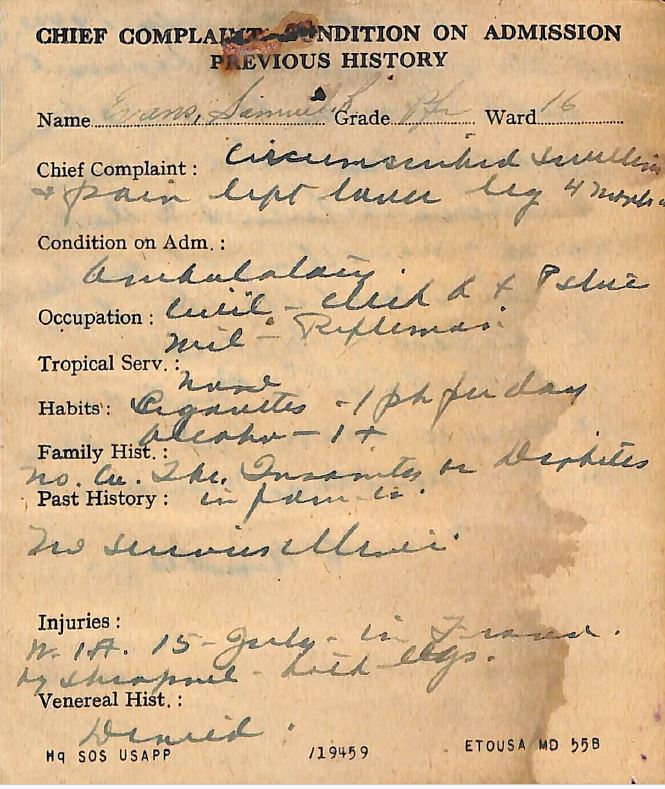 CHIEF COMPLAINT—CONDITION ON ADMISSION
PREVIOUS HISTORY
Name Evans, Samuel Grade Pfc Ward 16
Chief Complaint : Circumscribed swelling
+ pain left lower leg 4 months
Condition on Adm. :
Ambulatory.
Occupation : Civil - Clerk A + P Store
Mil - Rifleman.
Tropical Serv. :
None
Habits : Cigarettes - 1 pk per day
Alcohol - 1+
Family Hist. :
No. Ca. Tbc. Insanity or Diabetes
Past History : in family.
No serious illness.
Injuries :
W.I.A. 15 - July - in France.
by shrapnel - both legs.
Venereal Hist. :
Denied.
Hq SOS USAPP /19459 ETOUSA MD 55B